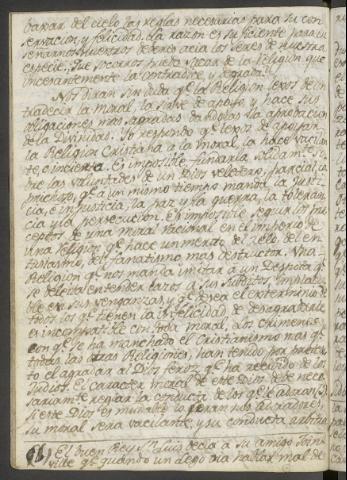 baxar del cielo las reglas necesarias para su con
servacion, y felicidad. La razon es suficiente para en
señarnos nuestros deberes acia los seres de nuestra
especie. Que socorros puede sacar de la Religion, que
incesantemente la contradice, y degrada?
Nos diran sin duda qe. la Religion lexos de con
tradecir la moral, la sirve de apoyo, y hace sus
obligaciones mas sagradas dandolas la aprobacion
de la Divinidad. Yo respondo qe. lexos de apoyar
la Religion Cristiana a la moral, la hace vacilan
te, e incierta. Es imposible fundarla solidamte. so
bre las voluntades de un Dios veleidoso, parcial, ca
prichoso, qe. a un mismo tiempo manda la justi
cia, e injusticia, la paz y la guerra, la toleran
cia y la persecucion. Es imposible seguir los pre
ceptos de una moral racional en el imperio de
una Religion qe. hace un merito del zelo, del en
tusiasmo, del fanatismo mas destructor. Una
Religion qe. nos manda imitar a un Despota qe.
se deleita en tender lazos a sus subditos, implaca
ble en sus venganzas, y qe. desea el exterminio de
todos los qe. tienen la infelicidad de desagradarle
es incompatible con toda moral. Los crimenes
con qe. se ha manchado el Cristianismo mas qe.
todas las otras Religiones, han tenido por pretex
to el agradar al Dios feroz qe. ha recibido de los
Judios. El caracter moral de este Dios debe nece
sariamte. reglar la conducta de los qe. le adoran. (1)
Si este Dios es mudable, lo seran sus adoradores,
su moral sera vacilante, y su conducta arbitra
(1) El buen Rey Sn. Luis decia a su amigo Join
ville qe. quando un lego oia hablar mal de